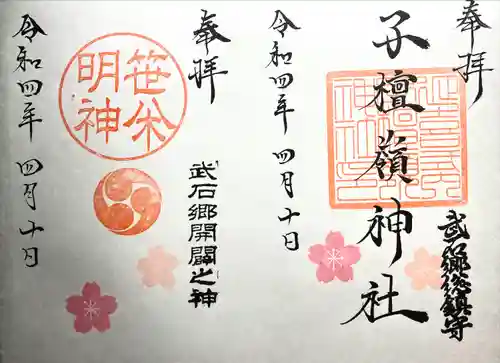 奉拝
武石郷総鎮守
子檀嶺神社
令和四年 四月十日
奉拝
武石郷開闢之神
笹焼
明神
令和四年 四月十日